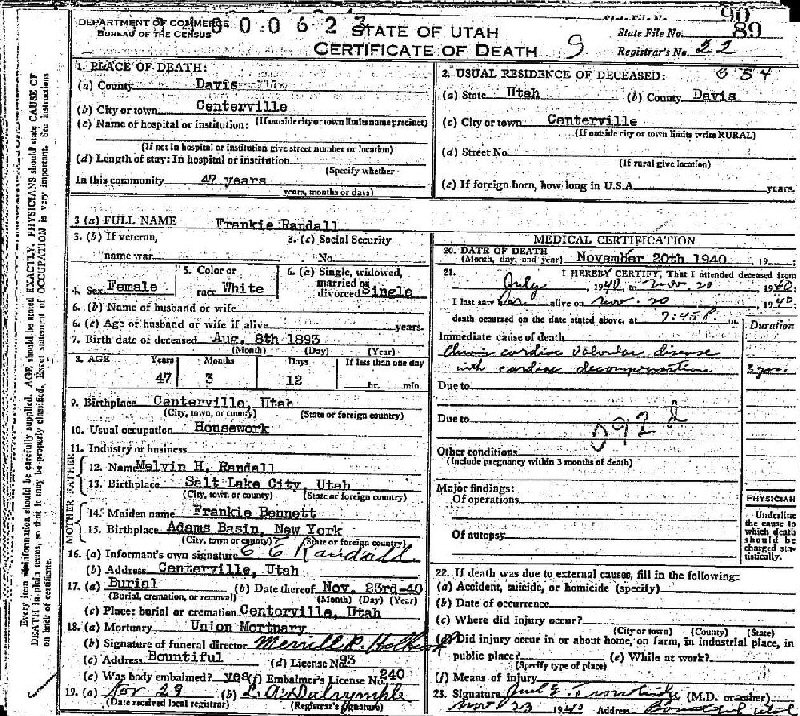 DEPARTMENT OF COMMERCE
BUREAU OF THE CENSUS
600623
STATE OF UTAH
CERTIFICATE OF DEATH
9
90
State File No. 89
Registrar's No. 22
1. PLACE OF DEATH:
(a) County Davis
(b) City or town Centerville
(c) Name of hospital or institution: (If outside city or town limits name precinct)
(If not in hospital or institution give street number or location)
(d) Length of stay: In hospital or institution
(Specify whether
In this community 47 years
years, months or days)
2. USUAL RESIDENCE OF DECEASED: 654
(a) State Utah (b) County Davis
(c) City or town Centerville
(If outside city or town limits write RURAL)
(d) Street No.
(If rural give location)
(e) If foreign born, how long in U.S.A. years.
3 (a) FULL NAME Frankie Randall
3. (b) If veteran, name war
3. (c) Social Security No.
4. Sex Female
5. Color or race White
6. (a) Single, widowed, married or divorced Single
6. (b) Name of husband or wife
6. (c) Age of husband or wife if alive years.
7. Birth date of deceased Aug. 8th 1893
(Month) (Day) (Year)
8. AGE Years Months Days If less than one day
47 3 12 hr. min
9. Birthplace Centerville, Utah
(City, town, or county) (State or foreign country)
10. Usual occupation Housework
11. Industry or business
FATHER
12. Name Melvin H. Randall
13. Birthplace Salt Lake City, Utah
(City, town or county) (State or foreign country)
MOTHER
14. Maiden name Frankie Bennett
15. Birthplace Adams Basin, New York
(City, town or county) (State or foreign country)
16. (a) Informant's own signature Randall
(b) Address Centerville, Utah
17. (a) Burial (b) Date thereof Nov. 23rd-40
(Burial, cremation, or removal) (Month) (Day) (Year)
(c) Place: burial or cremation Centerville, Utah
18. (a) Mortuary Union Mortuary
(b) Signature of funeral director Merrill R. Holbrook
(c) Address Bountiful (d) License No. 93
(e) Was body embalmed? yes (f) Embalmer's License No. 240
19. (a) Nov 29 (b) L. A. Dalrymple
(Date received local registrar) (Registrar's signature)
MEDICAL CERTIFICATION
20. DATE OF DEATH November 20th 1940 19
(Month, day, and year)
21. I HEREBY CERTIFY, That I attended deceased from
July 1940 to Nov. 20 1940.
I last saw her alive on Nov. 20 1940.
death occurred on the date stated above, at 7:45 P. m. Duration
Immediate cause of death
chronic cardiac valvular disease
with cardiac decompensation
Due to
Due to
092
Other conditions
(Include pregnancy within 3 months of death)
Major findings:
Of operations
Of autopsy
PHYSICIAN
Underline the cause to which death should be charged statistically.
22. If death was due to external causes, fill in the following:
(a) Accident, suicide, or homicide (specify)
(b) Date of occurrence
(c) Where did injury occur?
(City or town) (County) (State)
(d) Did injury occur in or about home, on farm, in industrial place, in
public place? (e) While at work?
(Specify type of place)
(f) Means of injury
23. Signature (M.D. or other)
23 1940 Address Bountiful
Every item of information should be carefully supplied. AGE should be stated EXACTLY. PHYSICIANS should state CAUSE OF
DEATH in plain terms, so that it may be properly classified. Exact statement of OCCUPATION is very important. See instructions
on back of certificate.